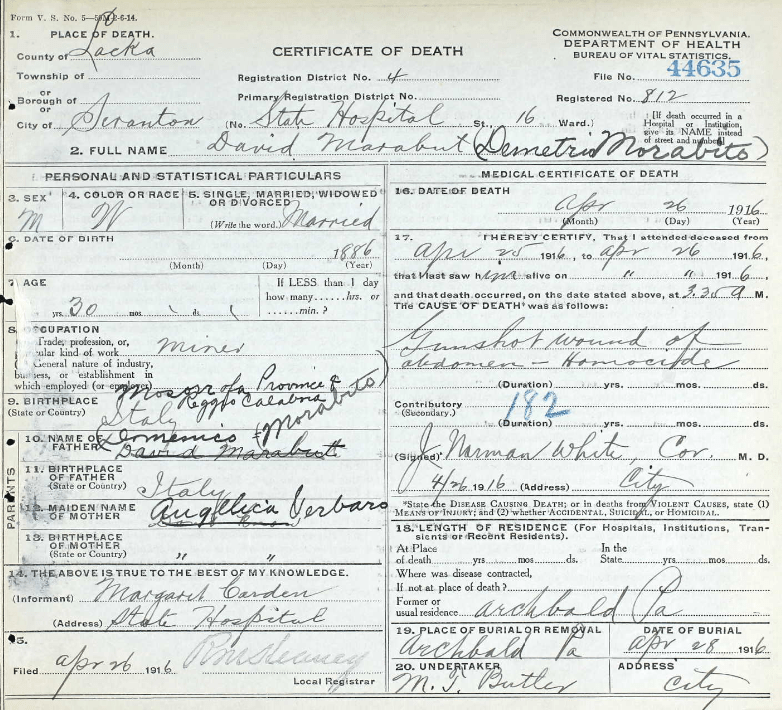 Form V. S. No. 5—50M-2-6-14.
1. PLACE OF DEATH.
County of Lacka
Township of
or
Borough of
or
City of Scranton
CERTIFICATE OF DEATH
Registration District No. 4
Primary Registration District No.
(No. State Hospital St., 16 Ward.)
COMMONWEALTH OF PENNSYLVANIA.
DEPARTMENT OF HEALTH
BUREAU OF VITAL STATISTICS.
File No. 44635
Registered No. 812
[If death occurred in a Hospital or Institution, give its NAME instead of street and number.]
2. FULL NAME David Marabut (Demetrio Morabito)
PERSONAL AND STATISTICAL PARTICULARS
3. SEX M
4. COLOR OR RACE W
5. SINGLE, MARRIED, WIDOWED OR DIVORCED
(Write the word.) Married
6. DATE OF BIRTH
1886
(Month) (Day) (Year)
7 AGE
30 yrs. mos. ds.
If LESS than 1 day how many......hrs. or ......min.?
8. OCCUPATION
Trade, profession, or,
ular kind of work miner
General nature of industry,
business, or establishment in
which employed (or employer)
9. BIRTHPLACE
(State or Country)
Province of
Reggio Calabria
Italy
10. NAME OF FATHER
Domenico Morabito
David Marabut
11. BIRTHPLACE OF FATHER
(State or Country) Italy
12. MAIDEN NAME OF MOTHER
Angelica Verbaro
13. BIRTHPLACE OF MOTHER
(State or Country) " "
14. THE ABOVE IS TRUE TO THE BEST OF MY KNOWLEDGE.
(Informant) Margaret Carden
(Address) State Hospital
15.
Filed Apr 26 1916
Local Registrar
PARENTS
MEDICAL CERTIFICATE OF DEATH
16. DATE OF DEATH
Apr 26 1916
(Month) (Day) (Year)
17. I HEREBY CERTIFY, That I attended deceased from
Apr 25 1916, to Apr 26 1916,
that I last saw him alive on " " 1916,
and that death occurred, on the date stated above, at 3.30 a M.
The CAUSE OF DEATH was as follows:
Gunshot wound of
abdomen - Homocide
(Duration) yrs. mos. ds.
Contributory
(Secondary.)
182
(Duration) yrs. mos. ds.
(Signed) J Norman White, Cor. M. D.
4/26 1916 (Address) City
*State the DISEASE CAUSING DEATH; or in deaths from VIOLENT CAUSES, state (1)
MEANS OF INJURY; and (2) whether ACCIDENTAL, SUICIDAL, or HOMICIDAL.
18. LENGTH OF RESIDENCE (For Hospitals, Institutions, Tran-
sients or Recent Residents).
At Place of death yrs. mos. ds. In the State yrs. mos. ds.
Where was disease contracted,
If not at place of death?
Former or
usual residence Archbald Pa
19. PLACE OF BURIAL OR REMOVAL
Archbald Pa
DATE OF BURIAL
Apr 28 1916
20. UNDERTAKER
M. T. Butler
ADDRESS
City